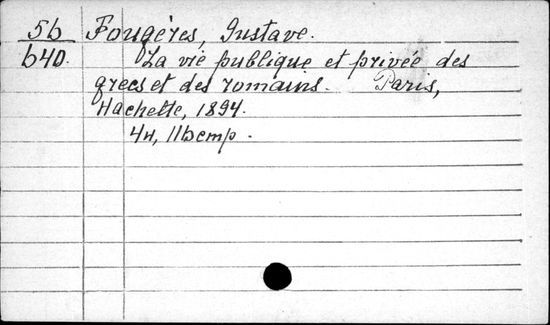 56 Fougères, Gustave.
640. La vie publique et privée des
grecs et des romains. Paris,
Hachette, 1894.
4н, 116 стр.